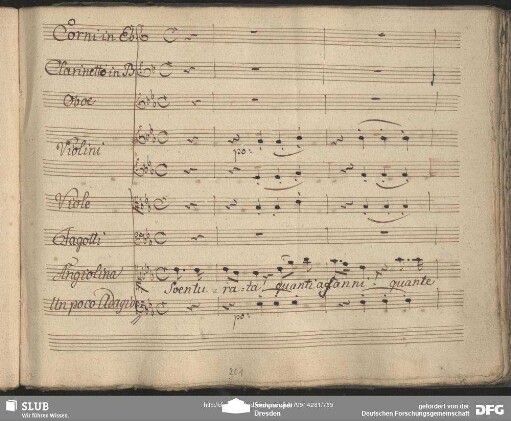 Corni in Eb
Clarinetto in B
Oboe
Violini
po:
Viole
Fagotti
Angiolina
Sventu - ra - ta! quanti affanni! quante
Un poco Adagio
po:
201
SLUB
Wir führen Wissen.
Dresden
gefördert von der
Deutschen Forschungsgemeinschaft
DFG